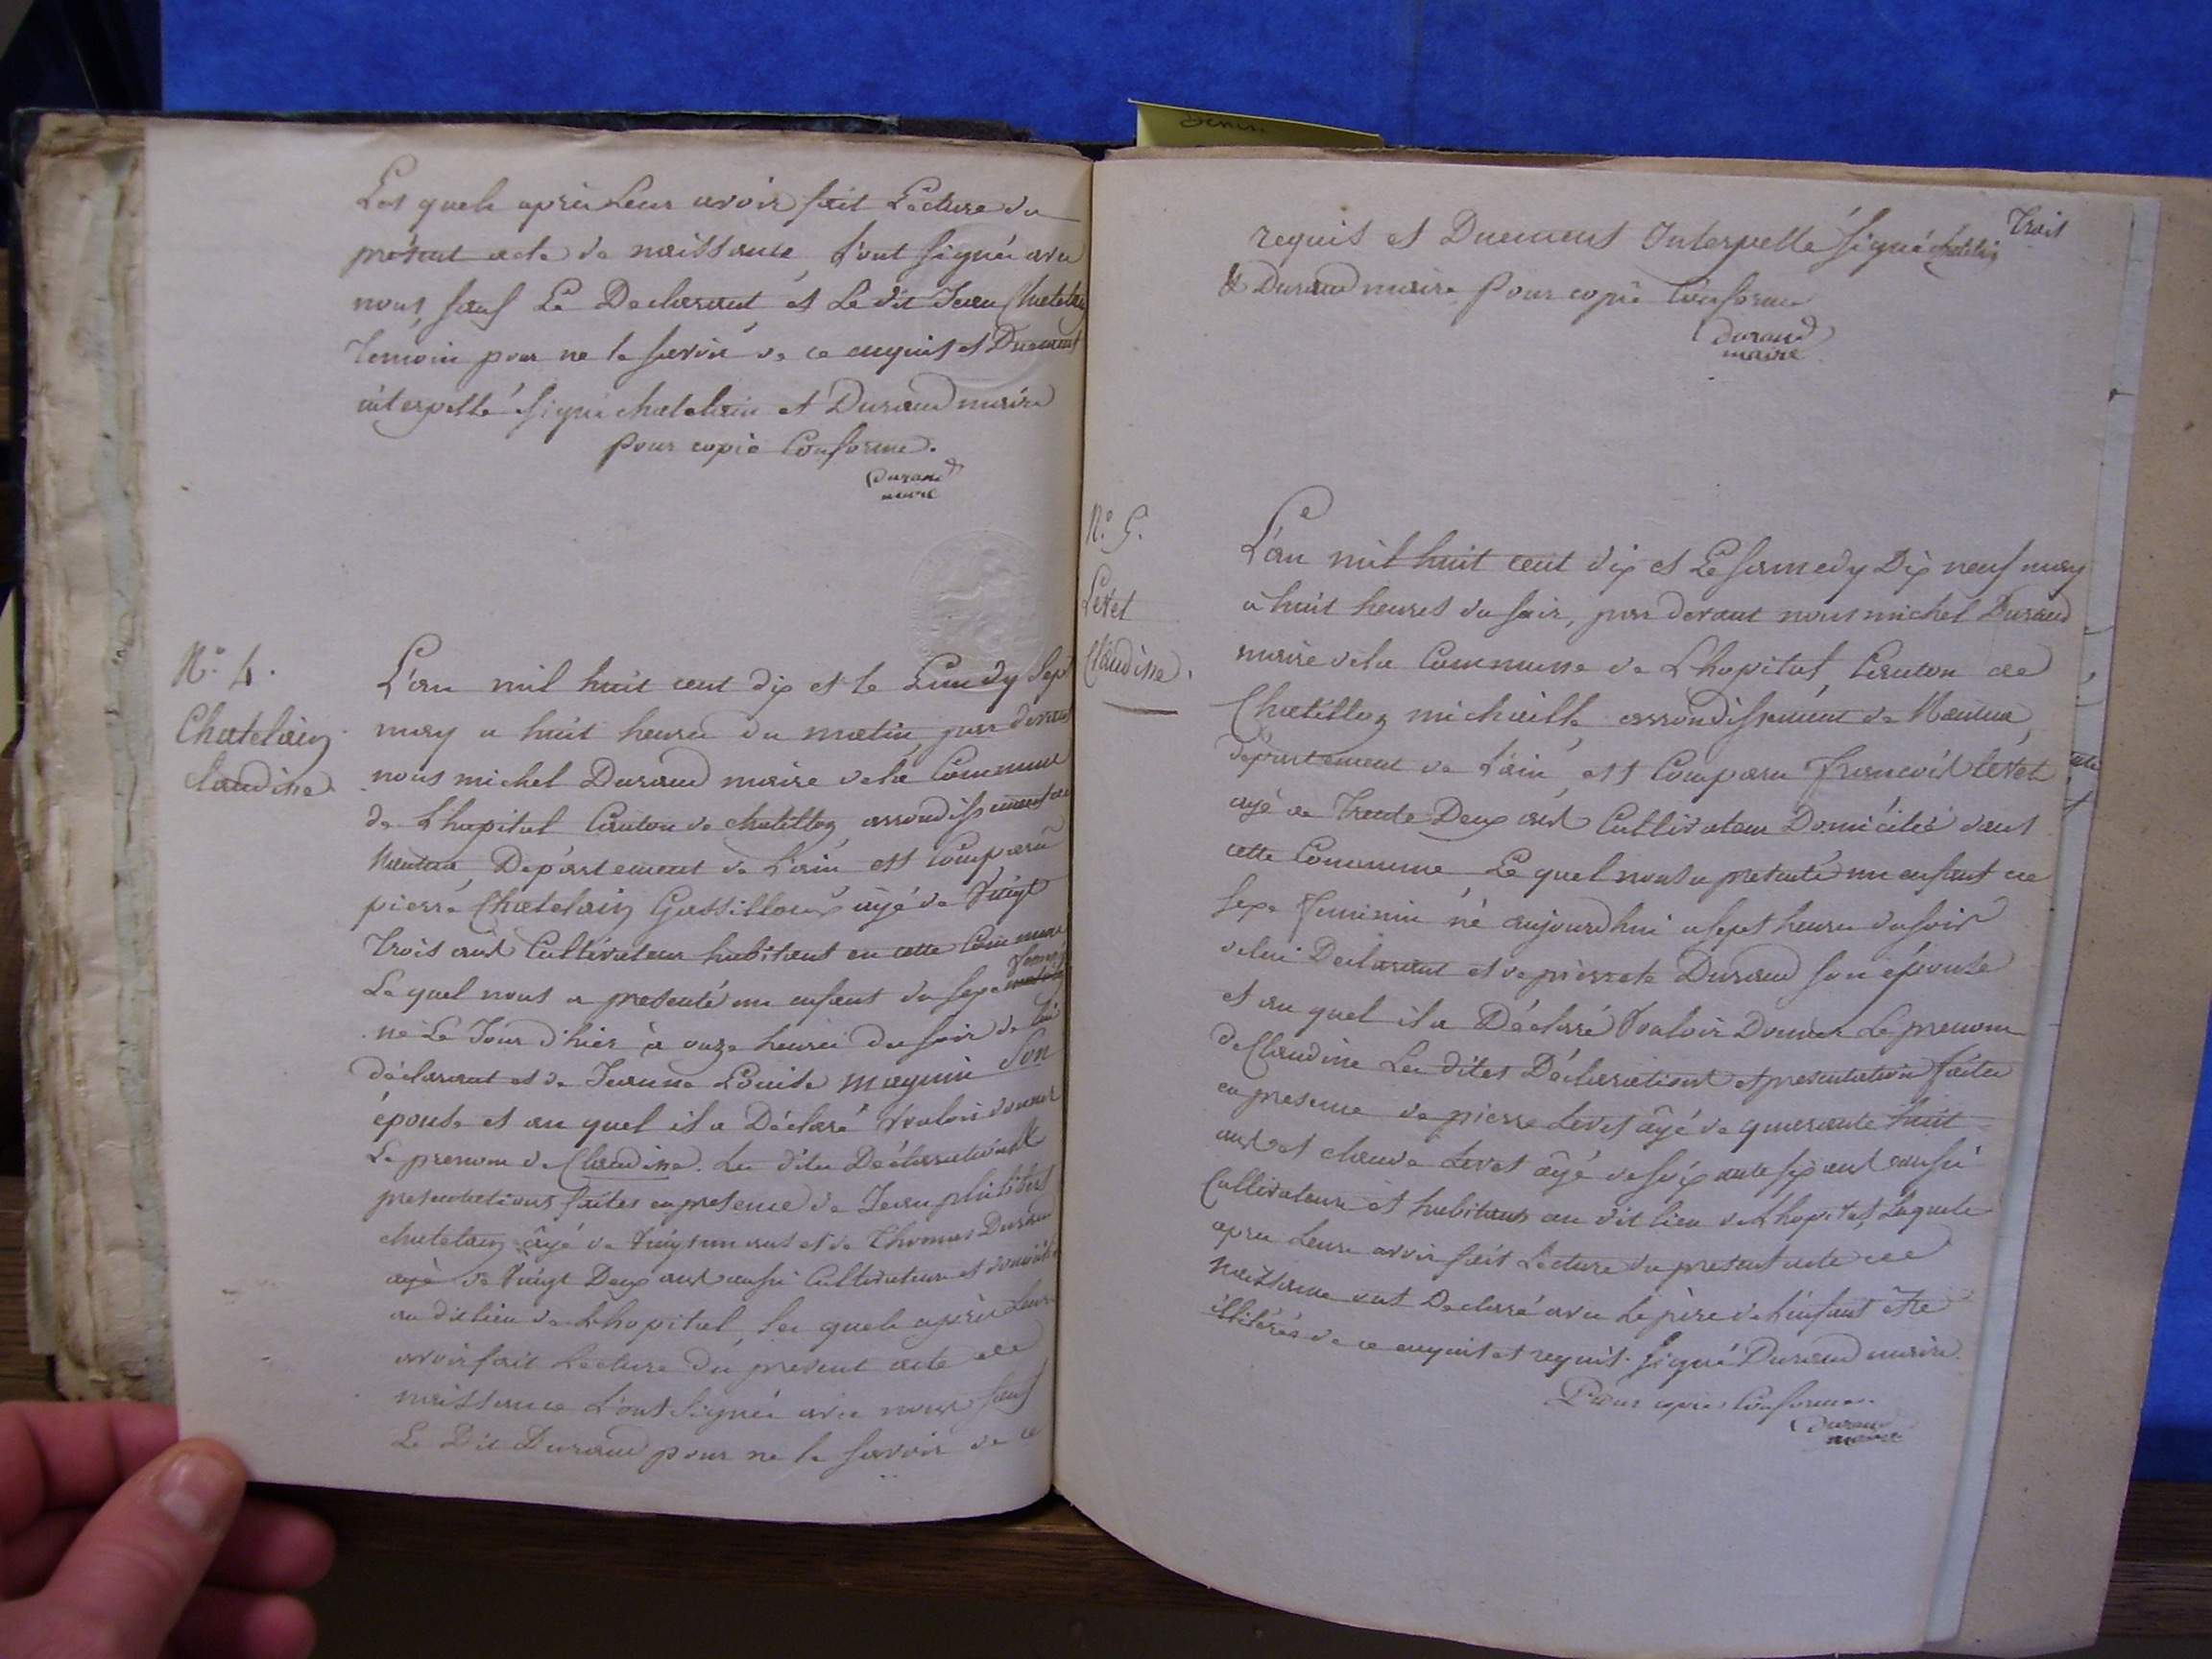 Les quels après Leur avoir fait Lecture du
présent acte de naissance, l'ont signée avec
nous, sauf Le Declarant et Le dit Jean Chatelain
Temoin pour ne le savoir de ce enquis et Duement
interpellé signé chatelain et Durand maire
pour copie Conforme.
Durand
maire
N.o 4.
Chatelain
claudine
L'an mil huit cent dix et le Lundy Sept
may a huit heures du matin par devant
nous michel Durand maire dela Commune
de Lhopital Canton de chatillon arrondissement de
Nantua, Département de L'ain est comparu
pierre Chatelain âgé de Vingt
trois ans Cultivateur habitant en cette Commune
Le quel nous a presenté un enfant du sexe feminin
né Le Jour d'hier à onze heures du soir de lui
déclarant et de Jeanne Louise magnin son
épouse et au quel il a Déclaré Vouloir donner
Le prenom de Claudine. Les dites Déclarations et
presentations faites en presence de Jean philibert
chatelain âgé de Vingt un ans et de Thomas Durand
agé de Vingt Deux ans aussi Cultivateurs et domiciliés
au dit lieu de Lhopital, les quels après Leur
avoir fait Lecture du present acte de
naissance L'ont signée avec nous sauf
Le Dit Durand pour ne le savoir de ce
Trois
requis et Duement Interpellé signé chatelain
& Durand maire pour copie Conforme
Durand
maire
N.o 5.
Levet
Claudine.
L'an mil huit cent dix et Le samedy Dix neuf may
a huit heures du soir, par devant nous michel Durand
maire dela Commune de Lhopital, Canton de
Chatillon michaille arrondissement de Nantua,
département de L'ain, est Comparu François Levet
agé de Trente Deux ans Cultivateur Domicilié dans
cette Commune Le quel nous a presenté un enfant de
sexe Feminin né aujourdhui a sept heures du soir
de lui Declarant et de pierrete Durand son épouse
et au quel il a Déclaré Vouloir Donner Le prenom
de Claudine Les dites Déclarations et presentation faites
en presence de pierre Levet âgé de quarante huit
ans et claude Levet âgé de soixante six ans aussi
Cultivateurs et habitans au dit lieu de Lhopital, Lesquels
apres Leur avoir fait Lecture du present acte de
Naissance ont Declaré avec Le père de L'enfant être
illitérés de ce enquis et requis. signé Durand maire.
Pour copie Conforme.
Durand
maire